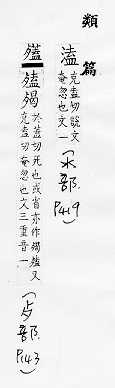 類篇
溘
克盍切說文
奄忽也文一
(水部 P419)
於蓋切死也或省亦作又
克盍切奄忽也文三重音一
(歹部 P143)